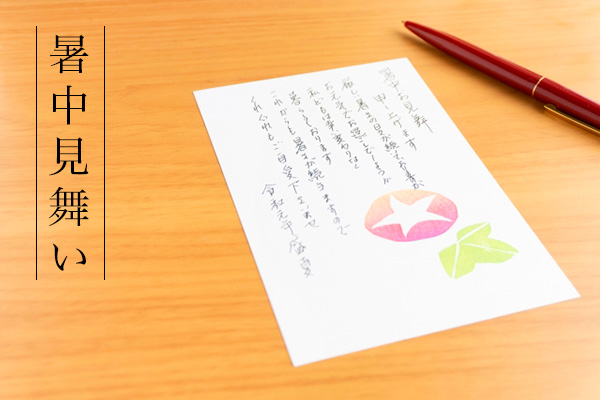 暑中見舞い
暑中お見舞
申し上げます
厳しい暑さの日が続いておりますが
お元気でお過ごしでしょうか
私どもは変わりなく
暮らしております
これからも暑さが続きますので
くれぐれもご自愛下さいませ
令和元年盛夏